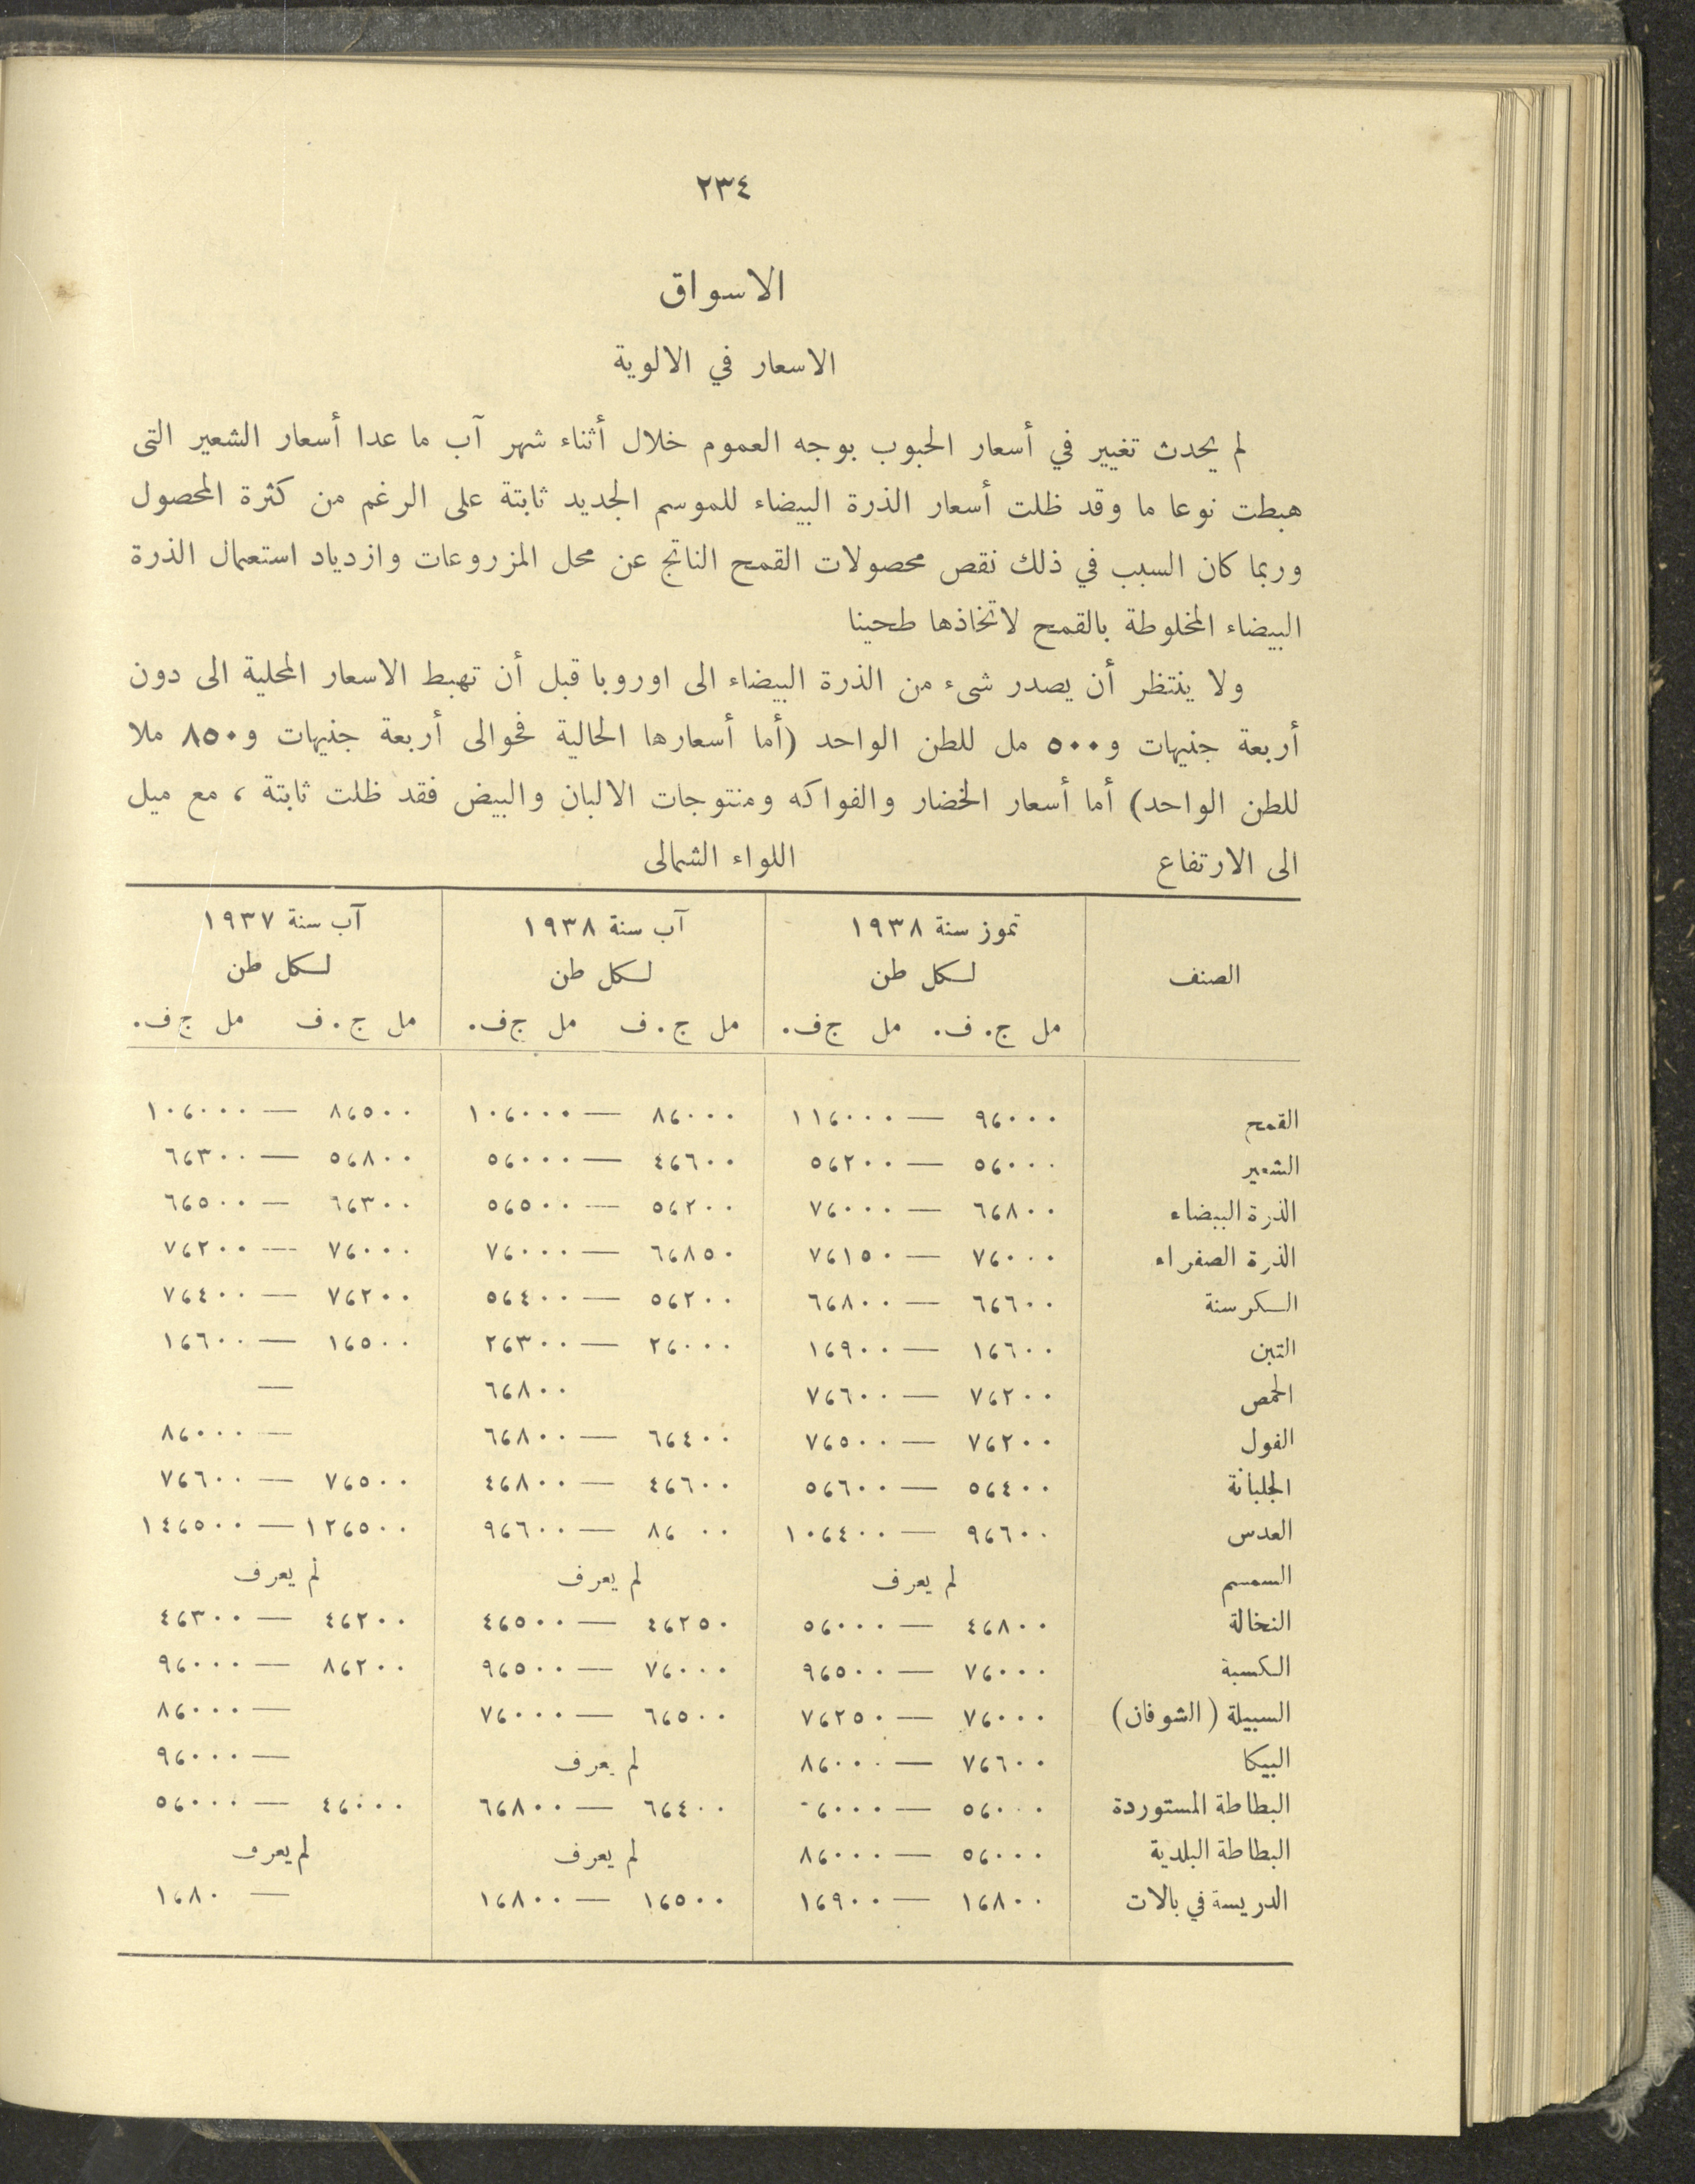 ٢٣٤
الاسواق
الاسعار في الالوية
لم يحدث تغيير في أسعار الحبوب بوجه العموم خلال أثناء شهر آب ما عدا أسعار الشعير التى
هبطت نوعا ما وقد ظلت أسعار الذرة البيضاء للموسم الجديد ثابتة على الرغم من كثرة المحصول
وربما كان السبب في ذلك نقص محصولات القمح الناتج عن محل المزروعات وازدياد استعمال الذرة
البيضاء المخلوطة بالقمح لاتخاذها طحينا
ولا ينتظر أن يصدر شىء من الذرة البيضاء الى اوروبا قبل أن تهبط الاسعار المحلية الى دون
أربعة جنيهات و٥٠٠ مل للطن الواحد (أما أسعارها الحالية فحوالى أربعة جنيهات و٨٥٠ ملا
للطن الواحد) أما أسعار الخضار والفواكه ومنتوجات الالبان والبيض فقد ظلت ثابتة ، مع ميل
الى الارتفاع
اللواء الشمالى
الصنف تموز سنة ١٩٣٨ آب سنة ١٩٣٨ آب سنة ١٩٣٧
لكل طن لكل طن لكل طن
مل ج. ف. مل ج ف. مل ج. ف مل ج ف. مل ج. ف مل ج ف.
القمح ٩،٠٠٠ — ١١،٠٠٠ ٨،٠٠٠ — ١٠،٠٠٠ ٨،٥٠٠ — ١٠،٠٠٠
الشعير ٥،٠٠٠ — ٥،٢٠٠ ٤،٦٠٠ — ٥،٠٠٠ ٥،٨٠٠ — ٦،٣٠٠
الذرة البيضاء ٦،٨٠٠ — ٧،٠٠٠ ٥،٢٠٠ — ٥،٥٠٠ ٦،٣٠٠ — ٦،٥٠٠
الذرة الصفراء ٧،٠٠٠ — ٧،١٥٠ ٦،٨٥٠ — ٧،٠٠٠ ٧،٠٠٠ — ٧،٢٠٠
الكرسنة ٦،٦٠٠ — ٦،٨٠٠ ٥،٢٠٠ — ٥،٤٠٠ ٧،٢٠٠ — ٧،٤٠٠
التبن ١،٦٠٠ — ١،٩٠٠ ٢،٠٠٠ — ٢،٣٠٠ ١،٥٠٠ — ١،٦٠٠
الحمص ٧،٢٠٠ — ٧،٦٠٠ ٦،٨٠٠ —
الفول ٧،٢٠٠ — ٧،٥٠٠ ٦،٤٠٠ — ٦،٨٠٠ — ٨،٠٠٠
الجلبانة ٥،٤٠٠ — ٥،٦٠٠ ٤،٦٠٠ — ٤،٨٠٠ ٧،٥٠٠ — ٧،٦٠٠
العدس ٩،٦٠٠ — ١٠،٤٠٠ ٨، ٠٠ — ٩،٦٠٠ ١٢،٥٠٠ — ١٤،٥٠٠
السمسم لم يعرف لم يعرف لم يعرف
النخالة ٤،٨٠٠ — ٥،٠٠٠ ٤،٢٥٠ — ٤،٥٠٠ ٤،٢٠٠ — ٤،٣٠٠
الكسبة ٧،٠٠٠ — ٩،٥٠٠ ٧،٠٠٠ — ٩،٥٠٠ ٨،٢٠٠ — ٩،٠٠٠
السبيلة (الشوفان) ٧،٠٠٠ — ٧،٢٥٠ ٦،٥٠٠ — ٧،٠٠٠ — ٨،٠٠٠
البيكا ٧،٦٠٠ — ٨،٠٠٠ لم يعرف — ٩،٠٠٠
البطاطة المستوردة ٥،٠٠٠ — ،٠٠٠ ٦،٤٠٠ — ٦،٨٠٠ ٤،٠٠٠ — ٥،٠٠٠
البطاطة البلدية ٥،٠٠٠ — ٨،٠٠٠ لم يعرف لم يعرف
الدريسة في بالات ١،٨٠٠ — ١،٩٠٠ ١،٥٠٠ — ١،٨٠٠ — ١،٨٠